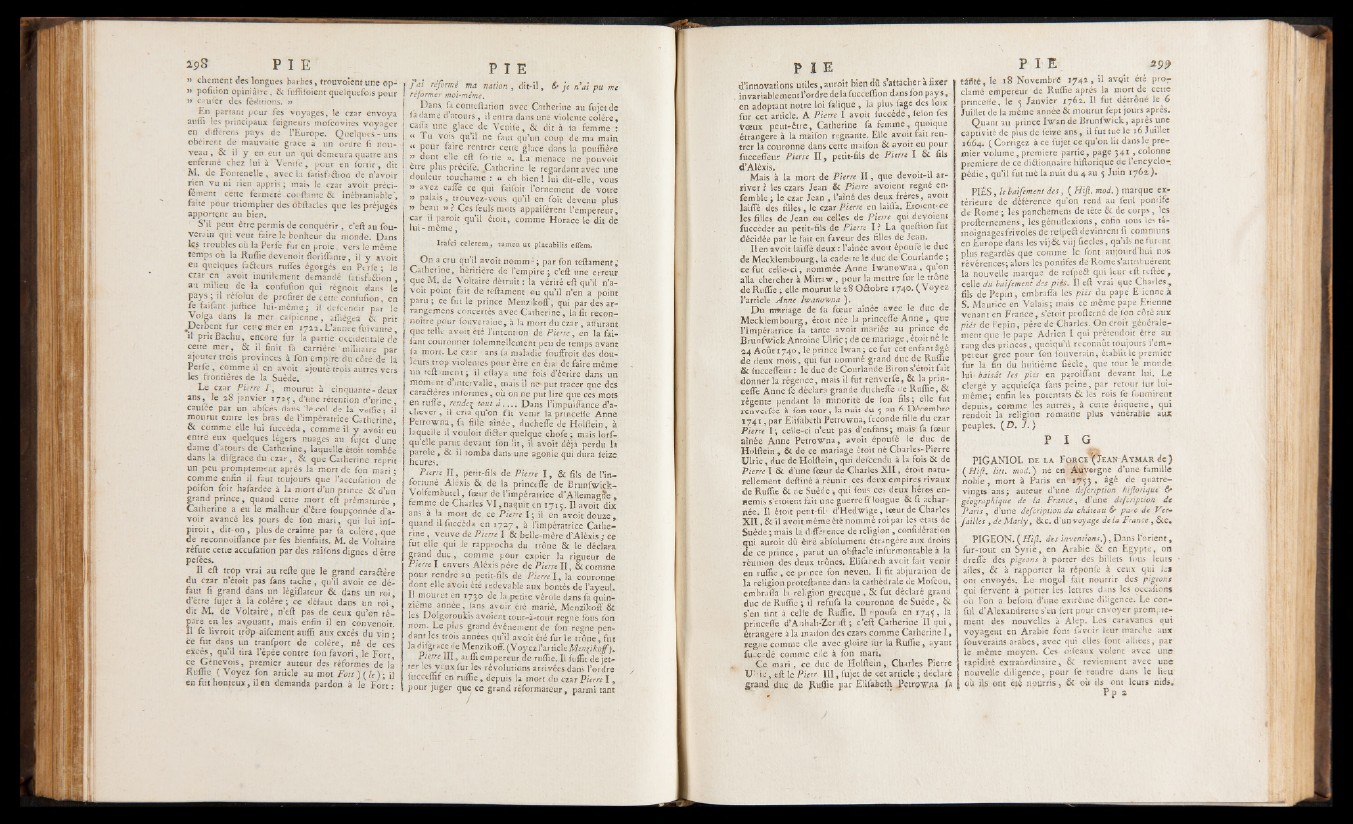 298 P I E
P I E
» chement des longues barbes, trouvoient une op-
» position opiniâtre, & suffisoient quelquefois pour
» causer des séditions. »
En partant pour ses voyages, le czar envoya
aussi les principaux seigneurs moscovites voyager
en différens pays de l'Europe. Quelques-uns
obéirent de mauvaise grace à un ordre si nou-
veau, & il y en eut un qui demeura quatre ans
enfermé chez lui à Venise, pour en sortir, dit
M. de Fontenelle, avec la satisfaction de n'avoir
rien vu ni rien appris; mais le czar avoit préci-
sément cette fermeté constante & inébranlable,
faite pour triompher des obstacles que les préjugés
apportent au bien.
S'il peut être permis de conquérir, c'est au sou-
verain qui veut faire le bonheur du monde. Dans
les troubles où la Perse fut en proie, vers le même
temps où la Russie devenoit florissante, il y avoit
eu quelques facteurs russes égorgés en Perse; le
czar en avoit inutilement demandé satisfaction,
au milieu de la confusion qui régnoit dans le
pays; il résolut de profiter de cette confusion, en
se faisant justice lui-même; il descendit par le
Volga dans la mer caspienne, assiégea & prit
Derbent sur cette mer en 1722. L'année suivante,
il prit Bachu, encore sur la partie occidentale de
cette mer, & il finit sa carrière militaire par
ajouter trois provinces à son empire du côté de la
Perse, comme il en avoit ajouté trois autres vers
les frontières de la Suède.
Le czar Pierre I, mourut à cinquante-deux
ans, le 28 janvier 1725, d'une rétention d'urine,
causée par un abscès dans le col de la vessie; il
mourut entre les bras de l'impératrice Catherine,
& comme elle lui succéda, comme il y avoit eu
entre eux quelques légers nuages au sujet d'une
dame d'atours de Catherine, laquelle étoit tombée
dans la disgrace du czar, & que Catherine reprit
un peu promptement après la mort de son mari;
comme enfin il faut toujours que l'accusation de
poison soit hasardée à la mort d'un prince & d'un
grand prince, quand cette mort est prématurée,
Catherine a eu le malheur d'être soupçonnée d'a-
voir avancé les jours de son mari, qui lui ins-
piroit, dit-on, plus de crainte par sa colère, que
de reconnoissance par ses bienfaits. M. de Voltaire
réfute cette accusation par des raisons dignes d'être
pesées.
Il est trop vrai au reste que le grand caractère
du czar n'étoit pas sans tache, qu'il avoit ce dé-
faut si grand dans un législateur & dans un roi,
d'être sujet à la colère; ce défaut dans un roi,
dit M. de Voltaire, n'est pas de ceux qu'on ré-
pare en les avouant, mais enfin il en convenoit.
Il se livroit trop aisément aussi aux excès du vin;
ce fut dans un transport de colère, né de ces
excès, qu'il tira l'épée contre son favori, le Fort,
ce Génevois, premier auteur des réformes de la
Russie (Voyez son article au mot Fort) (le); il
en fut honteux, il en demanda pardon à le Fort:
j'ai réformé ma nation, dit-il, & je n'ai pu me
réformer moi-même.
Dans sa contestation avec Catherine au sujet de
sa dame d'atours, il entra dans une violente colère,
cassa une glace de Venise, & dit à sa femme:
« Tu vois qu'il ne faut qu'un coup de ma main
« pour faire rentrer cette glace dans la poussière
» dont elle est sortie ». La menace ne pouvoit
être plus précise. Catherine le regardant avec une
douleur touchante: « eh bien! lui dit-elle, vous
» avez cassé ce qui faisoit l'ornement de votre
» palais, trouvez-vous qu'il en soit devenu plus
» beau »? Ces seuls mots appaisèrent l'empereur,
car il paroît qu'il étoit, comme Horace le dit de
lui-même,
Irasci celerem, tamen ut placabilis essem.
On a cru qu'il avoit nommé, par son testament,
Catherine, héritière de l'empire; c'est une erreur
que M. de Voltaire détruit: la vérité est qu'il n'a-
voit point fait de testament ou qu'il n'en a point
paru; ce fut le prince Menzikoff, qui par des ar-
rangemens concertés avec Catherine, la fit recon-
noître pour souveraine, à la mort du czar, assurant
que telle avoit été l'intention de Pierre, en la fai-
sant couronner solemnellement peu de temps avant
sa mort. Le czar dans sa maladie souffroit des dou-
leurs trop violentes pour être en état de faire même
un testament; il essaya une fois d'écrire dans un
moment d'intervalle, mais il ne put tracer que des
caractères informes, où on ne put lire que ces mots
en russe, rendez tout à.... Dans l'impuissance d'a-
chever, il cria qu'on fît venir la princesse Anne
Petrowna, sa fille aînée, duchesse de Holstein, à
laquelle il vouloit dicter quelque chose; mais lors-
qu'elle parut devant son lit, il avoit déjà perdu la
parole, & il tomba dans une agonie qui dura seize
heures.
Pierre II, petit-fils de Pierre I, & fils de l'in-
fortuné Aléxis & de la princesse de Brunswick-
Volfembutel, sœur de l'impératrice d'Allemagne,
femme de Charles VI, naquit en 1715. Il avoit dix
ans à la mort de ce Pierre I; il en avoit douze,
quand il succéda en 1727, à l'impératrice Cathe-
rine, veuve de Pierre I & belle-mère d'Aléxis; ce
fut elle qui le rapprocha du trône & le déclara
grand duc, comme pour expier la rigueur de
Pierre I envers Aléxis père de Pierre II, & comme
pour rendre au petit-fils de Pierre I, la couronne
dont elle avoit été redevable aux bontés de l'ayeul.
Il mourut en 1730 de la petite vérole dans sa quin-
zième année, sans avoir été marié. Menzikoff &
les Dolgorouskis avoient tour-à-tour régné sous son
nom. Le plus grand événement de son règne pen-
dant les trois années qu'il avoit été sur le trône, fut
la disgrace de Menzikoff. (Voyez l'article Menzikoff).
Pierre III, aussi empereur de russie. Il suffit de jet-
ter les yeux sur les révolutions arrivées dans l'ordre
successif en russie, depuis la mort du czar Pierre I,
pour juger que ce grand réformateur, parmi tant
P I E
P I E 299
d'innovations utiles, auroit bien dû s'attacher à fixer
invariablement l'ordre de la succession dans son pays,
en adoptant notre loi salique, la plus sage des loix
sur cet article. A Pierre I avoit succédé, selon ses
vœux peut-être, Catherine sa femme, quoique
étrangère à la maison régnante. Elle avoit fait ren-
trer la couronne dans cette maison & avoit eu pour
successeur Pierre II, petit-fils de Pierre I & fils
d'Aléxis.
Mais à la mort de Pierre II, que devoit-il ar-
river? les czars Jean & Pierre avoient regné en-
semble; le czar Jean, l'aîné des deux frères, avoit
laissé des filles, le czar Pierre en laissa. Étoient-ce
les filles de Jean ou celles de Pierre qui devoient
succéder au petit-fils de Pierre I? La question fut
décidée par le fait en faveur des filles de Jean.
Il en avoit laissé deux: l'aînée avoit épousé le duc
de Mecklembourg, la cadette le duc de Courlande;
ce fut celle-ci, nommée Anne Iwanowna, qu'on
alla chercher à Mittaw, pour la mettre sur le trône
de Russie; elle mourut le 28 Octobre 1740. (Voyez
l'article Anne Iwanowna).
Du mariage de sa sœur aînée avec le duc de
Mecklembourg, étoit née la princesse Anne, que
l'impératrice sa tante avoit mariée au prince de
Brunswick Antoine Ulric; de ce mariage, étoit né le
24 Août 1740, le prince Iwan; ce fut cet enfant âgé
de deux mois, qui fut nommé grand duc de Russie
& successeur: le duc de Courlande Biron s'étoit fait
donner la régence, mais il fut renversé, & la prin-
cesse Anne se déclara grande duchesse de Russie, &
régente pendant la minorité de son fils; elle fut
renversée à son tour, la nuit du 5 au 6 Décembre
1741, par Elisabeth Petrowna, seconde fille du czar
Pierre I; celle-ci n'eut pas d'enfans; mais sa sœur
aînée Anne Petrowna, avoit épousé le duc de
Holstein, & de ce mariage étoit né Charles-Pierre
Ulric, duc de Holstein, qui descendu à la fois & de
Pierre I & d'une sœur de Charles XII, étoit natu-
rellement destiné à réunir ces deux empires rivaux
de Russie & de Suède, qui sous ces deux héros en-
nemis s'étoient fait une guerre si longue & si achar-
née. Il étoit petit-fils d'Hedwige, sœur de Charles
XII, & il avoit même été nommé roi par les états de
Suède; mais la différence de religion, considération
qui auroit dû être absolument étrangère aux droits
de ce prince, parut un obstacle insurmontable à la
réunion des deux trônes. Elisabeth avoit fait venir
en russie, ce prince son neveu. Il fit abjuration de
la religion protestante dans la cathédrale de Moscou,
embrassa la religion grecque, & fut déclaré grand
duc de Russie; il refusa la couronne de Suède, &
s'en tint à celle de Russie. Il épousa en 1745, la
princesse d'Anhalt-Zerbst; c'est Catherine II qui,
étrangère à la maison des czars comme Catherine I,
regne comme elle avec gloire sur la Russie, ayant
succédé comme elle à son mari.
Ce mari, ce duc de Holstein, Charles Pierre
Ulric, est le Pierre III, sujet de cet article; déclaré
grand duc de Russie par Elisabeth Petrowna sa
tante, le 18 Novembre 1742, il avoit été pro-
clamé empereur de Russie après la mort de cette
princesse, le 5 Janvier 1762. Il fut détrôné le 6
Juillet de la même année & mourut sept jours après.
Quant au prince Iwan de Brunswick, après une
captivité de plus de seize ans, il fut tué le 16 Juillet
1664. (Corrigez à ce sujet ce qu'on lit dans le pre-
mier volume, première partie, page 341, colonne
première de ce dictionnaire historique de l'encyclo-
pédie, qu'il fut tué la nuit du 4 au 5 Juin 1762).
PIÉS, le baisement des, (Hist. mod.) marque ex-
térieure de déférence qu'on rend au seul pontife
de Rome; les panchemens de tête & de corps, les
prosternemens, les génuflexions, enfin tous les té-
moignages frivoles de respect devinrent si communs
en Europe dans les vij & viij siecles, qu'ils ne furent
plus regardés que comme le sont aujourd'hui nos
révérences; alors les pontifes de Rome s'attribuèrent
la nouvelle marque de respect qui leur est restée,
celle du baisement des piés. Il est vrai que Charles,
fils de Pepin, embrassa les piés du pape Etienne à
S. Maurice en Valais; mais ce même pape Etienne
venant en France, s'étoit prosterné de son côté aux
piés de Pepin, père de Charles. On croit générale-
ment que le pape Adrien I qui prétendoit être au
rang des princes, quoiqu'il reconnût toujours l'em-
pereur grec pour son souverain, établit le premier
sur la fin du huitième siecle, que tout le monde
lui baisât les piés en paroissant devant lui. Le
clergé y acquiesça sans peine, par retour sur lui-
même; enfin les potentats & les rois se soumirent
depuis, comme les autres, à cette étiquette, qui
rendoit la religion romaine plus vénérable aux
peuples. (D. J.)
P I G
PIGANIOL DE LA FORCE (JEAN AYMAR de)
(Hist. litt. mod.) né en Auvergne d'une famille
noble, mort à Paris en 1753, âgé de quatre-
vingts ans; auteur d'une description historique &
géographique de la France, d'une description de
Paris, d'une description du château & parc de Ver-
sailles, de Marly, &c. d'un voyage de la France, &c.
PIGEON. (Hist. des inventions.), Dans l'orient,
sur-tout en Syrie, en Arabie & en Egypte, on
dresse des pigeons à porter des billets sous leurs
ailes, & à rapporter la réponse à ceux qui les
ont envoyés. Le mogol fait nourrir des pigeons
qui servent à porter les lettres dans les occasions
où l'on a besoin d'une extrême diligence. Le con-
sul d'Alexandrette s'en sert pour envoyer prompte-
ment des nouvelles à Alep. Les caravanes qui
voyagent en Arabie font savoir leur marche aux
souverains arabes, avec qui elles sont alliées, par
le même moyen. Ces oiseaux volent avec une
rapidité extraordinaire, & reviennent avec une
nouvelle diligence, pour se rendre dans le lieu
où ils ont été nourris, & où ils ont leurs nids.
P p 2